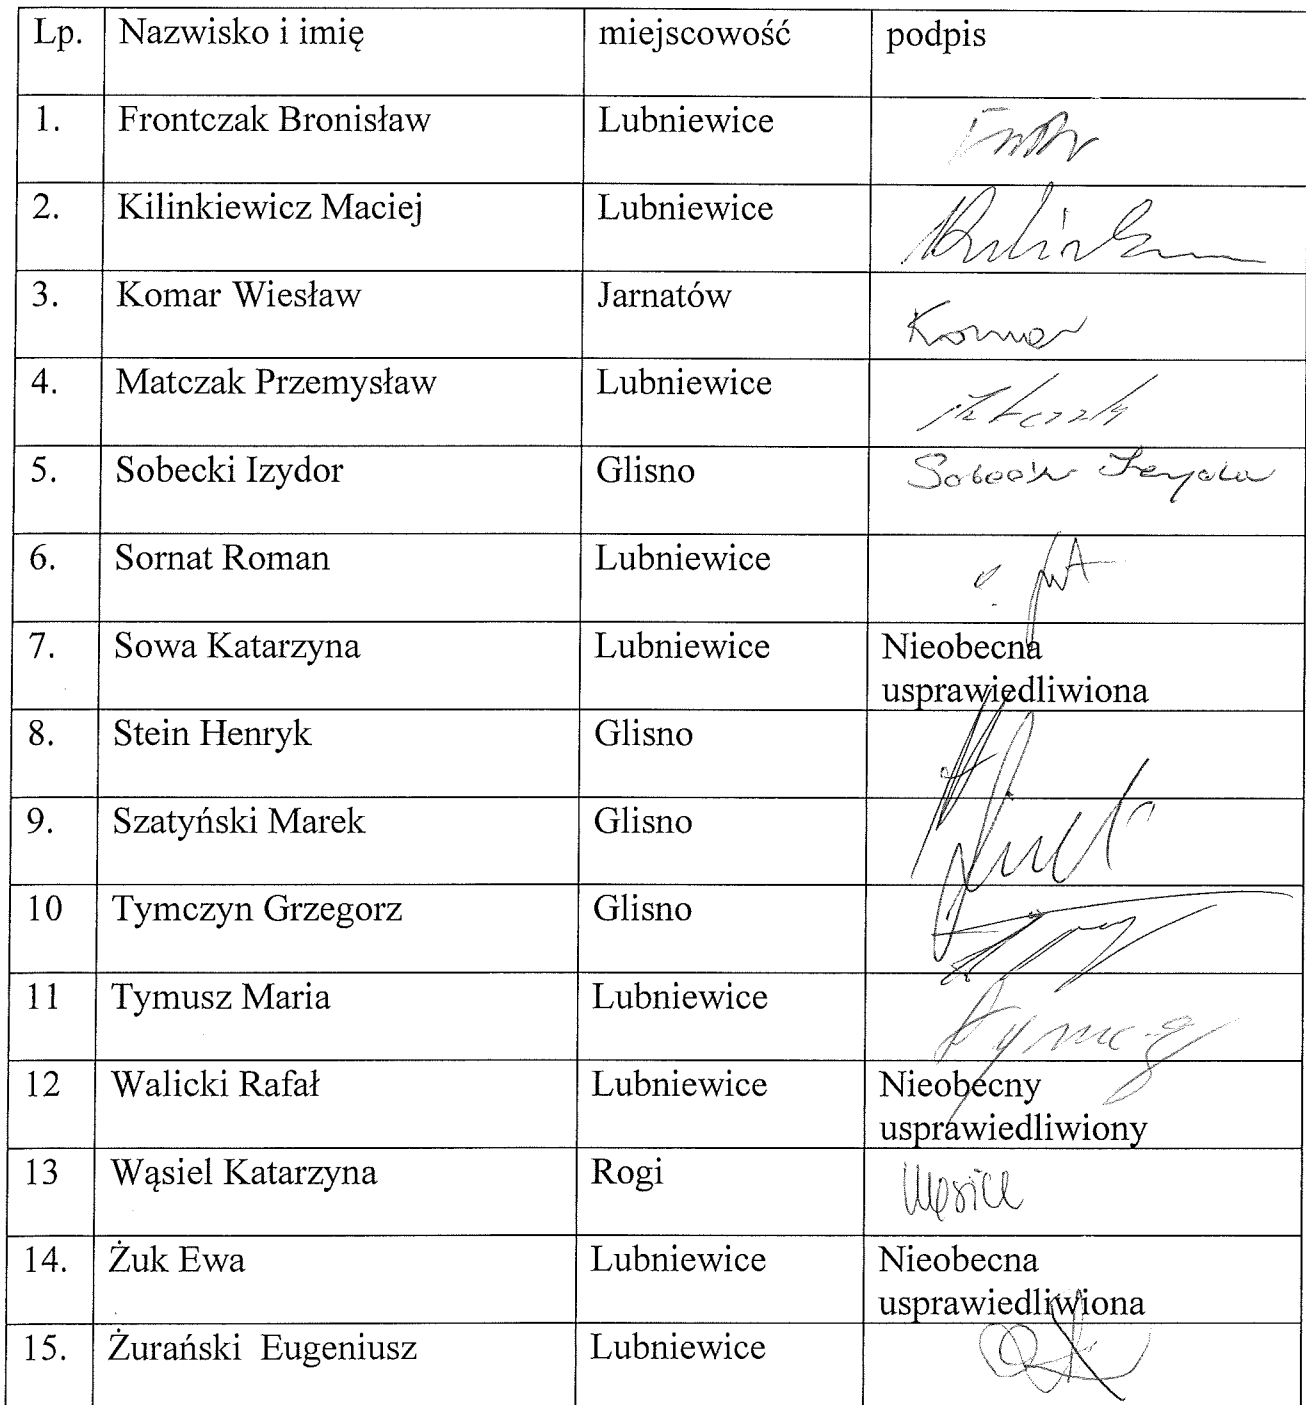 Lp. Nazwisko i imię miejscowość podpis
1. Frontczak Bronisław Lubniewice
2. Kilinkiewicz Maciej Lubniewice
3. Komar Wiesław Jarnatów Komar
4. Matczak Przemysław Lubniewice
5. Sobecki Izydor Glisno Sobecki Izydor
6. Sornat Roman Lubniewice
7. Sowa Katarzyna Lubniewice Nieobecna
usprawiedliwiona
8. Stein Henryk Glisno
9. Szatyński Marek Glisno
10 Tymczyn Grzegorz Glisno
11 Tymusz Maria Lubniewice
12 Walicki Rafał Lubniewice Nieobecny
usprawiedliwiony
13 Wąsiel Katarzyna Rogi Wąsiel
14. Żuk Ewa Lubniewice Nieobecna
usprawiedliwiona
15. Żurański Eugeniusz Lubniewice